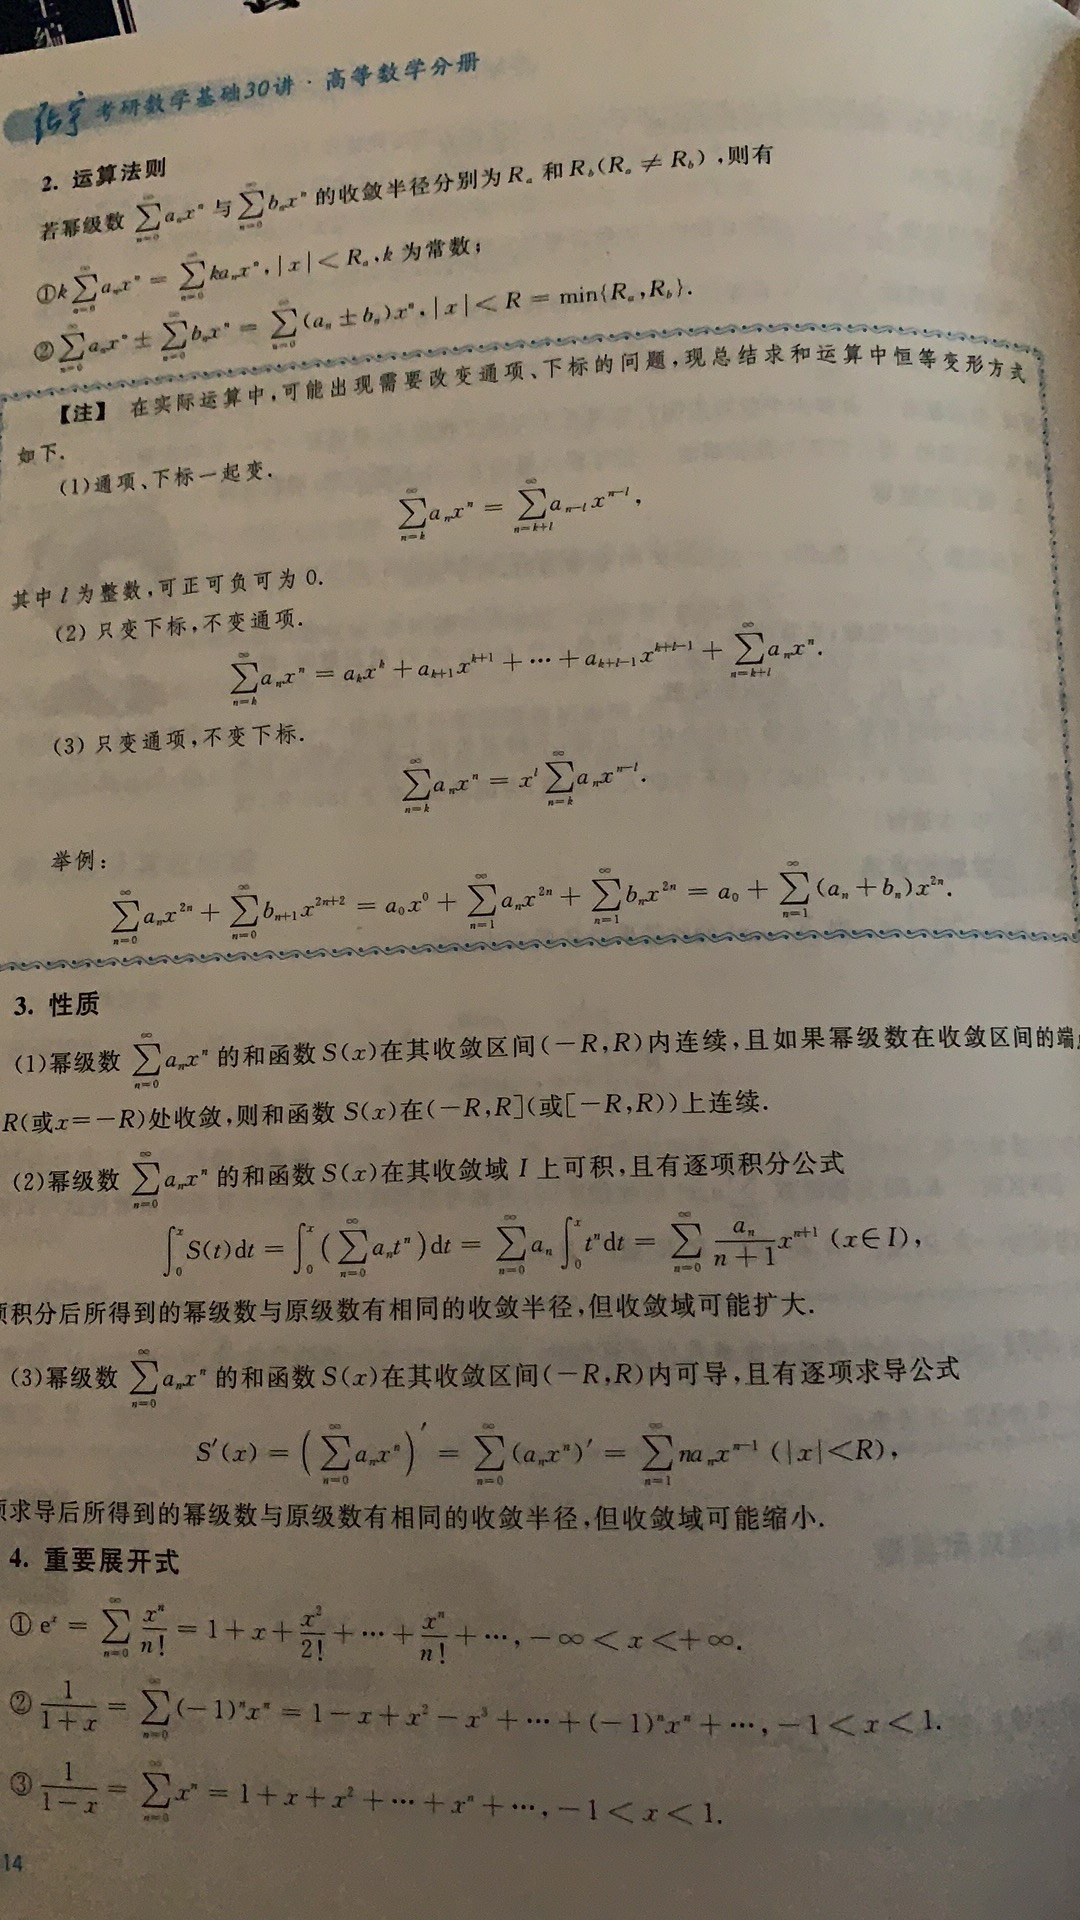 编
张宇考研数学基础30讲·高等数学分册
2. 运算法则
若幂级数 $\sum_{n=0}^{\infty}a_nx^n$ 与 $\sum_{n=0}^{\infty}b_nx^n$ 的收敛半径分别为 $R_a$ 和 $R_b(R_a\neq R_b)$,则有
①$k\sum_{n=0}^{\infty}a_nx^n=\sum_{n=0}^{\infty}ka_nx^n,|x|<R_a,k$ 为常数;
②$\sum_{n=0}^{\infty}a_nx^n\pm\sum_{n=0}^{\infty}b_nx^n=\sum_{n=0}^{\infty}(a_n\pm b_n)x^n,|x|<R=\min\{R_a,R_b\}.$
【注】 在实际运算中,可能出现需要改变通项、下标的问题,现总结求和运算中恒等变形方式
如下.
(1)通项、下标一起变.
$\sum_{n=k}^{\infty}a_nx^n=\sum_{n=k+l}^{\infty}a_{n-l}x^{n-l},$
其中 $l$ 为整数,可正可负可为 0.
(2) 只变下标,不变通项.
$\sum_{n=k}^{\infty}a_nx^n=a_kx^k+a_{k+1}x^{k+1}+\cdots+a_{k+l-1}x^{k+l-1}+\sum_{n=k+l}^{\infty}a_nx^n.$
(3) 只变通项,不变下标.
$\sum_{n=k}^{\infty}a_nx^n=x^l\sum_{n=k}^{\infty}a_nx^{n-l}.$
举例:
$\sum_{n=0}^{\infty}a_nx^{2n}+\sum_{n=0}^{\infty}b_{n+1}x^{2n+2}=a_0x^0+\sum_{n=1}^{\infty}a_nx^{2n}+\sum_{n=1}^{\infty}b_nx^{2n}=a_0+\sum_{n=1}^{\infty}(a_n+b_n)x^{2n}.$
3. 性质
(1)幂级数 $\sum_{n=0}^{\infty}a_nx^n$ 的和函数 $S(x)$在其收敛区间$(-R,R)$内连续,且如果幂级数在收敛区间的端
$R$(或$x=-R$)处收敛,则和函数 $S(x)$在$(-R,R]$(或$[-R,R)$)上连续.
(2)幂级数 $\sum_{n=0}^{\infty}a_nx^n$ 的和函数 $S(x)$在其收敛域 $I$ 上可积,且有逐项积分公式
$\int_0^xS(t)dt=\int_0^x(\sum_{n=0}^{\infty}a_nt^n)dt=\sum_{n=0}^{\infty}a_n\int_0^xt^ndt=\sum_{n=0}^{\infty}\frac{a_n}{n+1}x^{n+1}\ (x\in I),$
积分后所得到的幂级数与原级数有相同的收敛半径,但收敛域可能扩大.
(3)幂级数 $\sum_{n=0}^{\infty}a_nx^n$ 的和函数 $S(x)$在其收敛区间$(-R,R)$内可导,且有逐项求导公式
$S'(x)=(\sum_{n=0}^{\infty}a_nx^n)'=\sum_{n=0}^{\infty}(a_nx^n)'=\sum_{n=1}^{\infty}na_nx^{n-1}\ (|x|<R),$
求导后所得到的幂级数与原级数有相同的收敛半径,但收敛域可能缩小.
4. 重要展开式
①$e^x=\sum_{n=0}^{\infty}\frac{x^n}{n!}=1+x+\frac{x^2}{2!}+\cdots+\frac{x^n}{n!}+\cdots,-\infty<x<+\infty.$
②$\frac{1}{1+x}=\sum_{n=0}^{\infty}(-1)^nx^n=1-x+x^2-x^3+\cdots+(-1)^nx^n+\cdots,-1<x<1.$
③$\frac{1}{1-x}=\sum_{n=0}^{\infty}x^n=1+x+x^2+\cdots+x^n+\cdots,-1<x<1.$
14